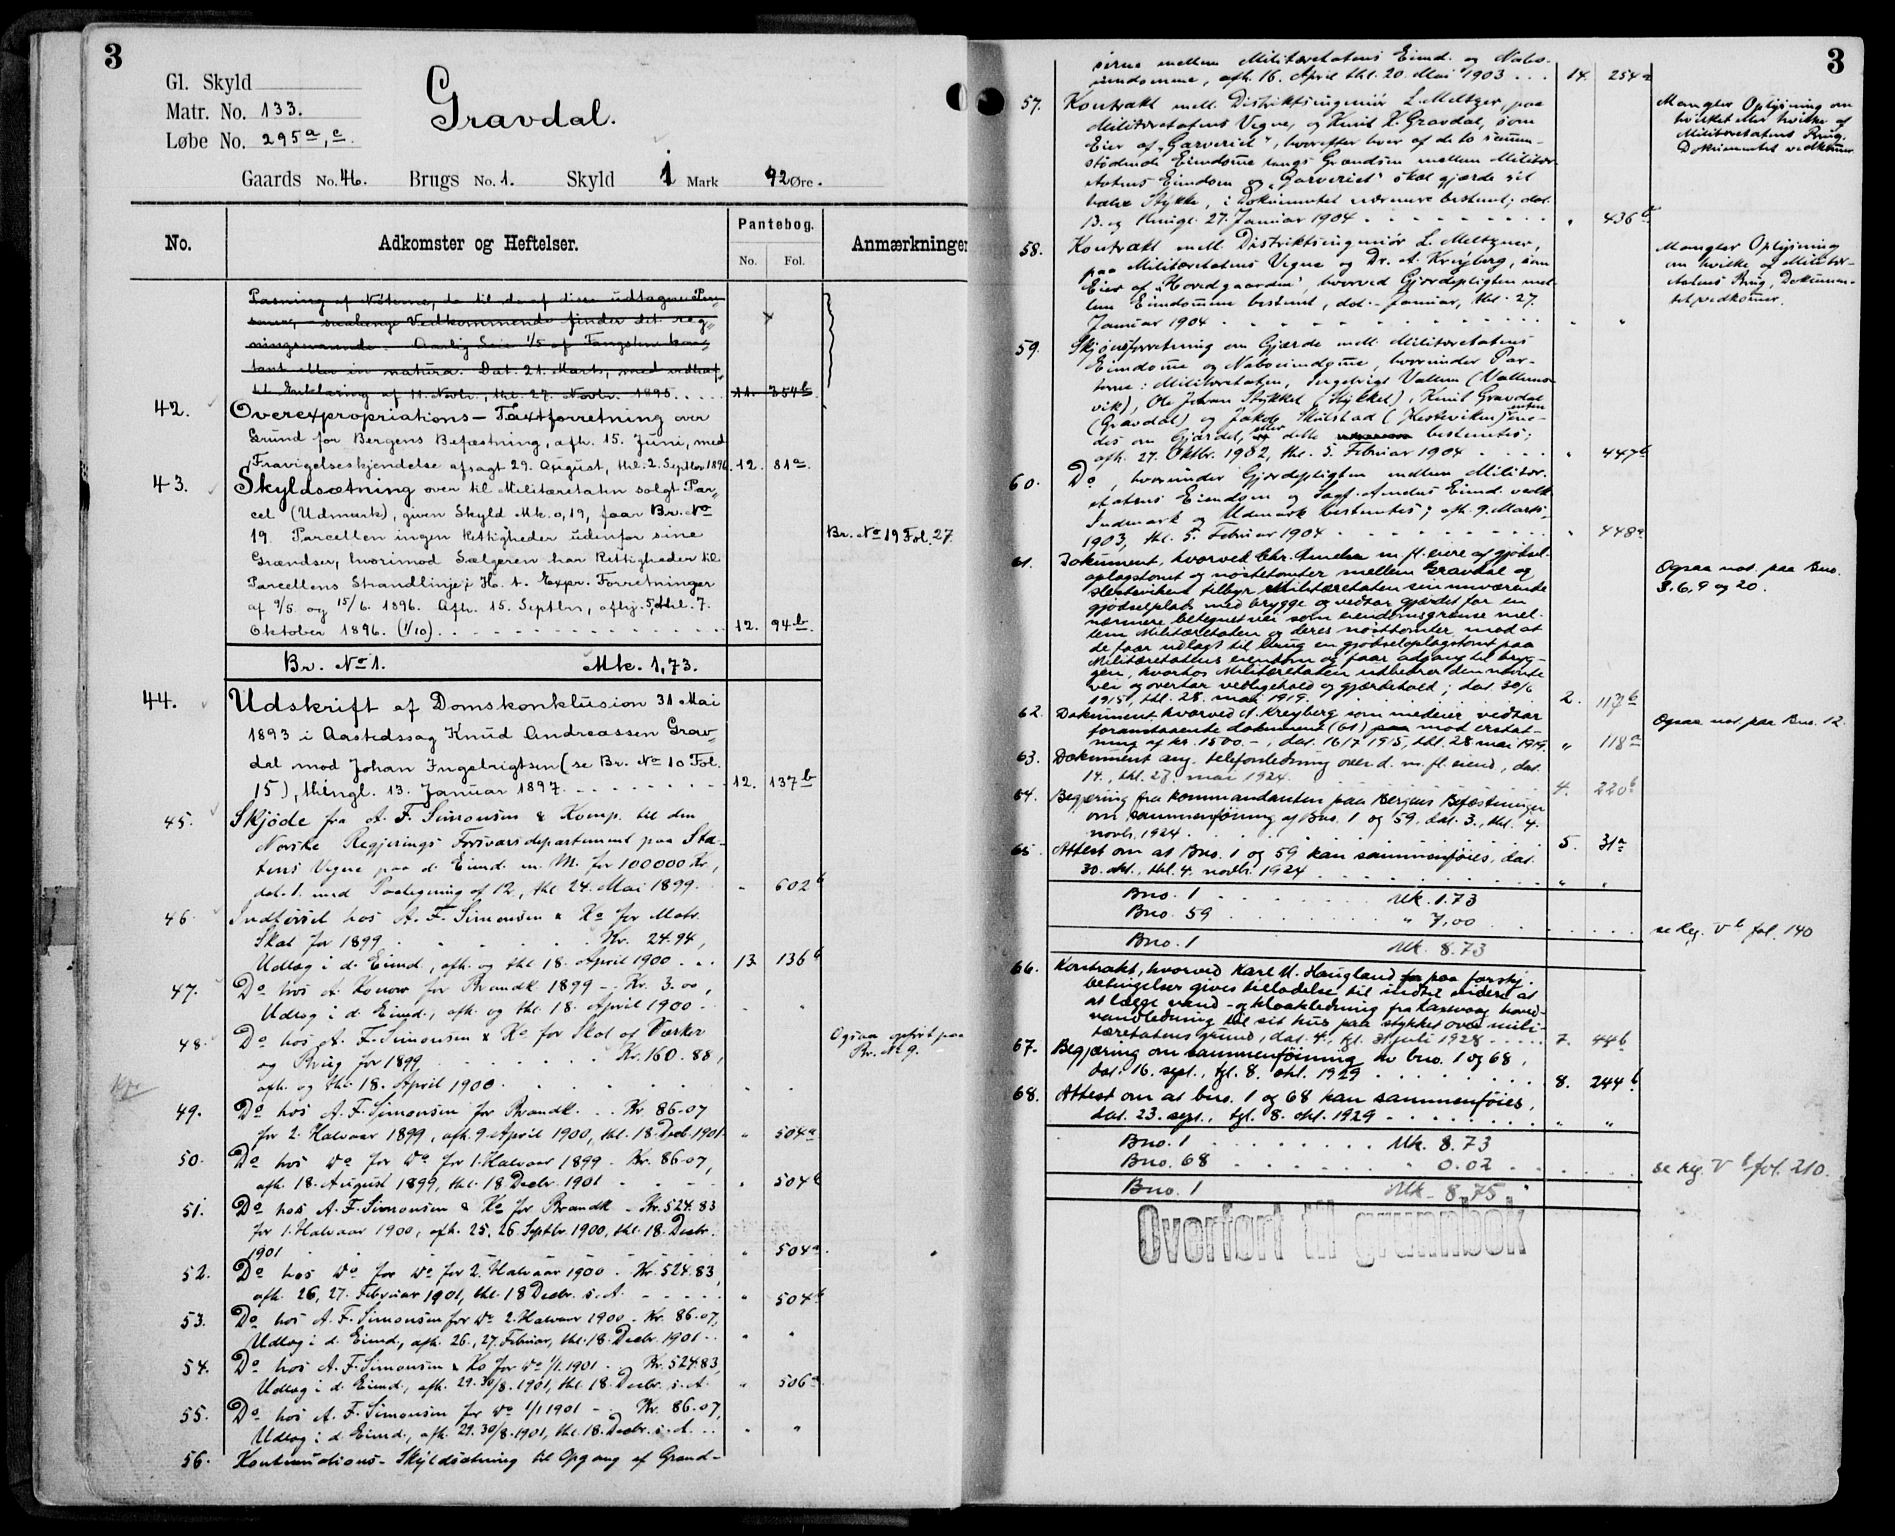 3
Gl. Skyld
Matr. No. 133.
Løbe No. 295a, c.
Gravdal.
Gaards No. 46. Brugs No. 1. Skyld 1 Mark 92 Øre.
No. Adkomster og Heftelser. Pantebog. Anmærkninger
No. Fol.
Pasning af Nøterne, da til de af disse udtagne Per-
soner, saalænge Vedkommende finder det reg-
ningsvarende. Aarlig Leie 1/5 af Fangsten kon-
tant eller in natura. Dat. 21. Marts, med vedhæf-
tet Erklæring af 11. Novbr., thl. 27. Novbr. 1895. . . . 11. 354b
42. Overexpropriations-Taxtforretning over
Grund for Bergens Befæstning, afh. 15. Juni, med
Fravigelseskjendelse afsagt 29. August, thl. 2. Septbr 1896 12. 81a
43. Skyldsætning over til Militæretaten solgt Par-
cel (Udmark), given Skyld Mk. 0,19, faar Br. No
19. Parcellen ingen Rettigheder udenfor sine Br. No 19 Fol. 27
Grændser, hvorimod Sælgeren har Rettigheder til
Parcellens Strandlinje; H. t. Expr. Forretninger
af 9/5 og 15/6. 1896. Afh. 15. Septbr, afhj. 5, thl. 7.
Oktober 1896. (1/10) . . . 12. 94b
Br. No 1. Mk. 1,73.
44. Udskrift af Domskonklusion 31 Mai
1893 i Aastedssag Knud Andreassen Grav-
dal mod Johan Ingebrigtsen (se Br. No 10 Fol.
15), thingl. 13. Januar 1897. . . . 12. 137b
45. Skjøde fra A. F. Simonsen & Komp. til den
Norske Regjerings Forsvarsdepartement paa Sta-
tens Vegne paa d. Eiend. m. M. for 100000 Kr,
dat. 1. med Paategning af 12, thl 24. Mai 1899. - 602b
46. Indførsel hos A. F. Simonsen & Ko for Matr.
Skat for 1899 . . . Kr. 24.94,
Udlæg i d. Eiend., afh. og thl 18. April 1900 . . . 13. 136b
47. Do hos A. Konow for Brandk 1899 - Kr. 3.00,
Udlæg i d. Eiend., afh. og thl. 18. April 1900 - " "
48. Do hos A. F. Simonsen & Ko for Skat af Værker Ogsaa anført paa
og Brug for 1899 . . . Kr. 160.88, Br. No 9.
afh. og thl. 18. April 1900 . . . " "
49. Do hos A. F. Simonsen for Brandk. . . Kr 86.07
for 2. Halvaar 1899, afh. 9. April 1900, thl. 18. Decb. 1901 " 504a
50. Do hos Do for Do for 1. Halvaar 1899 - Kr. 86.07,
afh. 18. August 1899, thl. 18. Decbr. 1901 . . . " 504b
51. Do hos A. F. Simonsen & Ko for Brandk - Kr. 524.83
for 1. Halvaar 1900, afh. 25, 26 Septbr. 1900, thl. 18. Decbr.
1901 . . . " 504a
52. Do hos Do for Do for 2. Halvaar 1900 - Kr. 524.83,
afh. 26, 27. Februar 1901, thl. 18 Decbr. s. A. . . . " 504b
53. Do hos A. F. Simonsen for Do 2. Halvaar 1900 - Kr. 86.07,
Udlæg i d. Eiend., afh. 26., 27. Februar, thl. 18. Decbr. 1901 - " "
54. Do hos A. F. Simonsen & Ko for Do 1/1. 1901 - Kr. 524.83,
Udlæg i d. Eiend., afh. 29. 30/8. 1901, thl. 18. Decbr. s. A. " 506a
55. Do hos A. F. Simonsen for Do 1/1 1901 - Kr. 86.07,
Udlæg i d. Eiend., afh. 29. 30/8. 1901, thl. 18. Decbr. s. A. . . " "
56. Kontinuations-Skyldsætning til Opgang af Grænd-
3
serne mellem Militæretatens Eiend. og Nabo-
eiendomme, afh. 16. April thl. 20. Mai 1903 . . . 14. 254a
57. Kontrakt mell. Distriktsingeniør L. Meltzer, paa Mangler Oplysning om
Militæretatens Vegne, og Knud K. Gravdal, som hvilket eller hvilke af
Eier af "Garveriet", hvorefter hver af de to sammen- Militæretatens Brug
stødende Eiendomme langs Grændsen mellem Militær- Dokumentet vedkommer
etatens Eiendom og "Garveriet" skal gjærde sit
halve Stykke, i Dokumentet nærmere bestemt; dat.
13. og thingl. 27. Januar 1904 . . . " 436b
58. Kontrakt mell Distriktsingeniør L. Meltzer, Mangler Oplysning
paa Militæretatens Vegne og Dr. A. Kreyberg, som om hvilke af Militær-
Eier af "Hovedgaarden", hvorved Gjerdepligten mel- etatens Brug, Dokumen-
lem Eiendomme bestemt, dat. - Januar, thl. 27. tet vedkommer.
Januar 1904 . . . " "
59. Skjønsforretning om Gjærde mell. Militæretatens
Eiendomme og Naboeiendomme, hvorunder Par-
terne: Militæretaten, Ingebrigt Vallem (Vallems-
vik), Ole Johan Stykket (Stykket), Knud Gravdal
(Gravdal) og Jakob Skulstad (Hesteviken) enten
des om Gjærdet, eller dette bestemtes;
afh. 27. Oktbr. 1902, thl. 5. Februar 1904 . . . " 447b
60. Do, hvorunder Gjerdepligten mellem Militær-
etatens Eiendom og Sagf. Amdus Eiend. vedk.
Indmark og Udmark bestemtes; afh. 9. Marts
1903, thl. 5. Februar 1904 . . . " 448a
61. Dokument, hvorved Chr. Amelsen m. fl. eiere af gjødsel- Ogsaa not. paa Bno.
oplagstomt og nøstetomter mellem Gravdal og 3, 6, 9 og 20.
Hesteviken tilbyr Militæretaten sin nuværende
gjødselplads med brygge og vedtar gjærdet for en
nærmere betegnet vei som eiendomsgrænse mel-
lem Militæretaten og deres nøsttomter, mod at
de faar udlagt til brug en gjødseloplagstomt paa
Militæretatens eiendom og faar adgang til bryg-
gen, hvorhos Militæretaten utbedrer den nævnte
vei og overtar vedligehold og gjærdehold; dat. 30/6
1915, thl. 28. mai 1919. . . . 2. 117b
62. Dokument hvorved A. Kreyberg som medeier vedtar Ogsaa not. paa Bno. 12.
foranstaaende dokument (61) paa mod erstat-
ning af kr. 1500.-, dat. 16/7 1915, thl. 28. mai 1919. " 118a
63. Dokument ang. telefonledning over d. m. fl. eiend., dat.
14., thl. 27. mai 1924. . . . 4. 220b
64. Begjæring fra kommandanten paa Bergens Befæstninger
om sammenføining af Bno. 1 og 59, dat. 3., thl. 4.
novbr. 1924. . . . 5. 31a
65. Attest om at Bno. 1 og 59 kan sammenføies, dat.
30. okt., thl. 4. novbr. 1924 . . . " "
Bno. 1 . . . Mk. 1.73
Bno. 59 . . . " 7,00 . . . se Reg. Vb fol. 140
Bno. 1 Mk. 8.73
66. Kontrakt, hvorved Karl M. Haugland for paa forskj.
betingelser gives tilladelse til indtil videre at
at lægge vand- og kloakledning fra Laxevaag hoved-
vandledning til sit hus paa stykket over mili-
tæretatens grund, dat. 4., tgl. 31. juli 1928 . . . 7. 44b
67. Begjæring om sammenføining av bno. 1 og 68,
dat. 16. sept., tgl. 8. okt. 1929 . . . 8. 244b
68. Attest om at bno. 1 og 68 kan sammenføies,
dat. 23. sept., tgl. 8. okt. 1929 . . . " "
Bno. 1 . . . Mk. 8.73
Bno. 68 . . . " 0.02 . . . se Reg. Vb fol. 210.
Bno. 1 Mk. 8.75
Overført til grunnbok